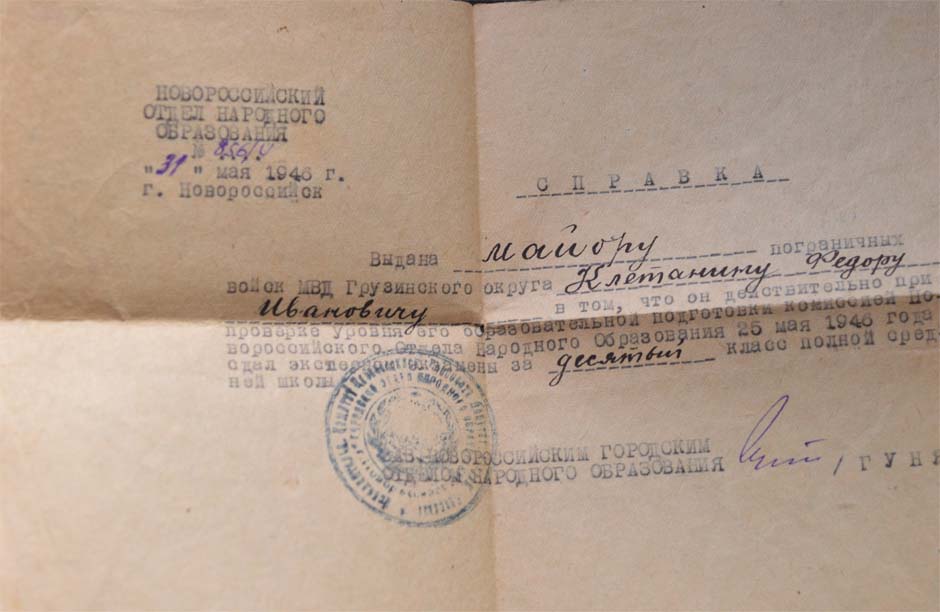 НОВОРОССИЙСКИЙ
ОТДЕЛ НАРОДНОГО
ОБРАЗОВАНИЯ
№ 856/У
"31" мая 1946 г.
г. Новороссийск
СПРАВКА
Выдана майору пограничных
войск МВД Грузинского округа Клетанину Федору
Ивановичу в том, что он действительно при
проверке уровня его образовательной подготовки комиссией Но-
вороссийского Отдела Народного Образования 25 мая 1946 года
сдал экзамены за десятый класс полной сред
ней школы
ЗАВ НОВОРОССИЙСКИМ ГОРОДСКИМ
ОТДЕЛОМ НАРОДНОГО ОБРАЗОВАНИЯ , ГУНЯ